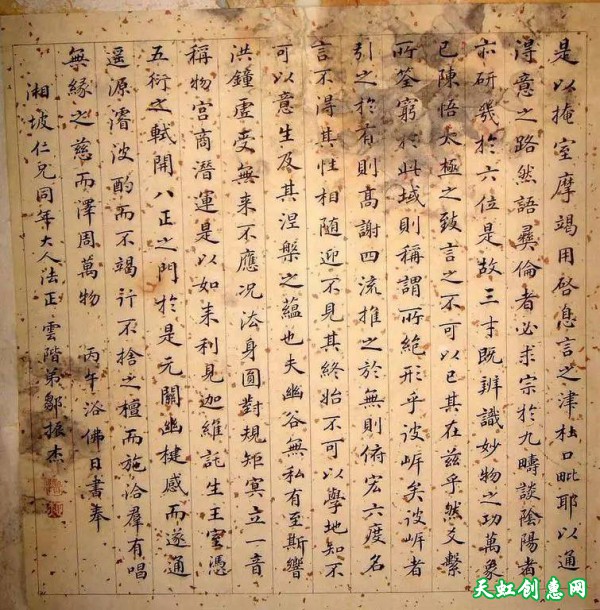 是以掩室摩竭用啓息言之津杜口毗耶以通
得意之路然語彝倫者必求宗於九疇談陰陽者
亦研幾於六位是故三才既辨識妙物之功萬象
已陳悟太極之致言之不可以已其在兹乎然爻繫
所筌窮於此域則稱謂所絶形乎彼岸矣彼岸者
引之於有則高謝四流推之於無則俯宏六度名
言不得其性相隨迎不見其終始不可以學地知不
可以意生及其涅槃之蘊也夫幽谷無私有至斯響
洪鐘虛受無来不應况法身圓對規矩冥立一音
稱物宮商潛運是以如来利見迦維託生王室憑
五衍之軾開八正之門於是元關幽楗感而遂通
遥源濬波酌而不竭行不捨之檀而施洽羣有唱
無緣之慈而澤周萬物 丙午浴佛日書奉
湘坡仁兄同年大人法正 雲階弟鄒振杰
天虹创惠网